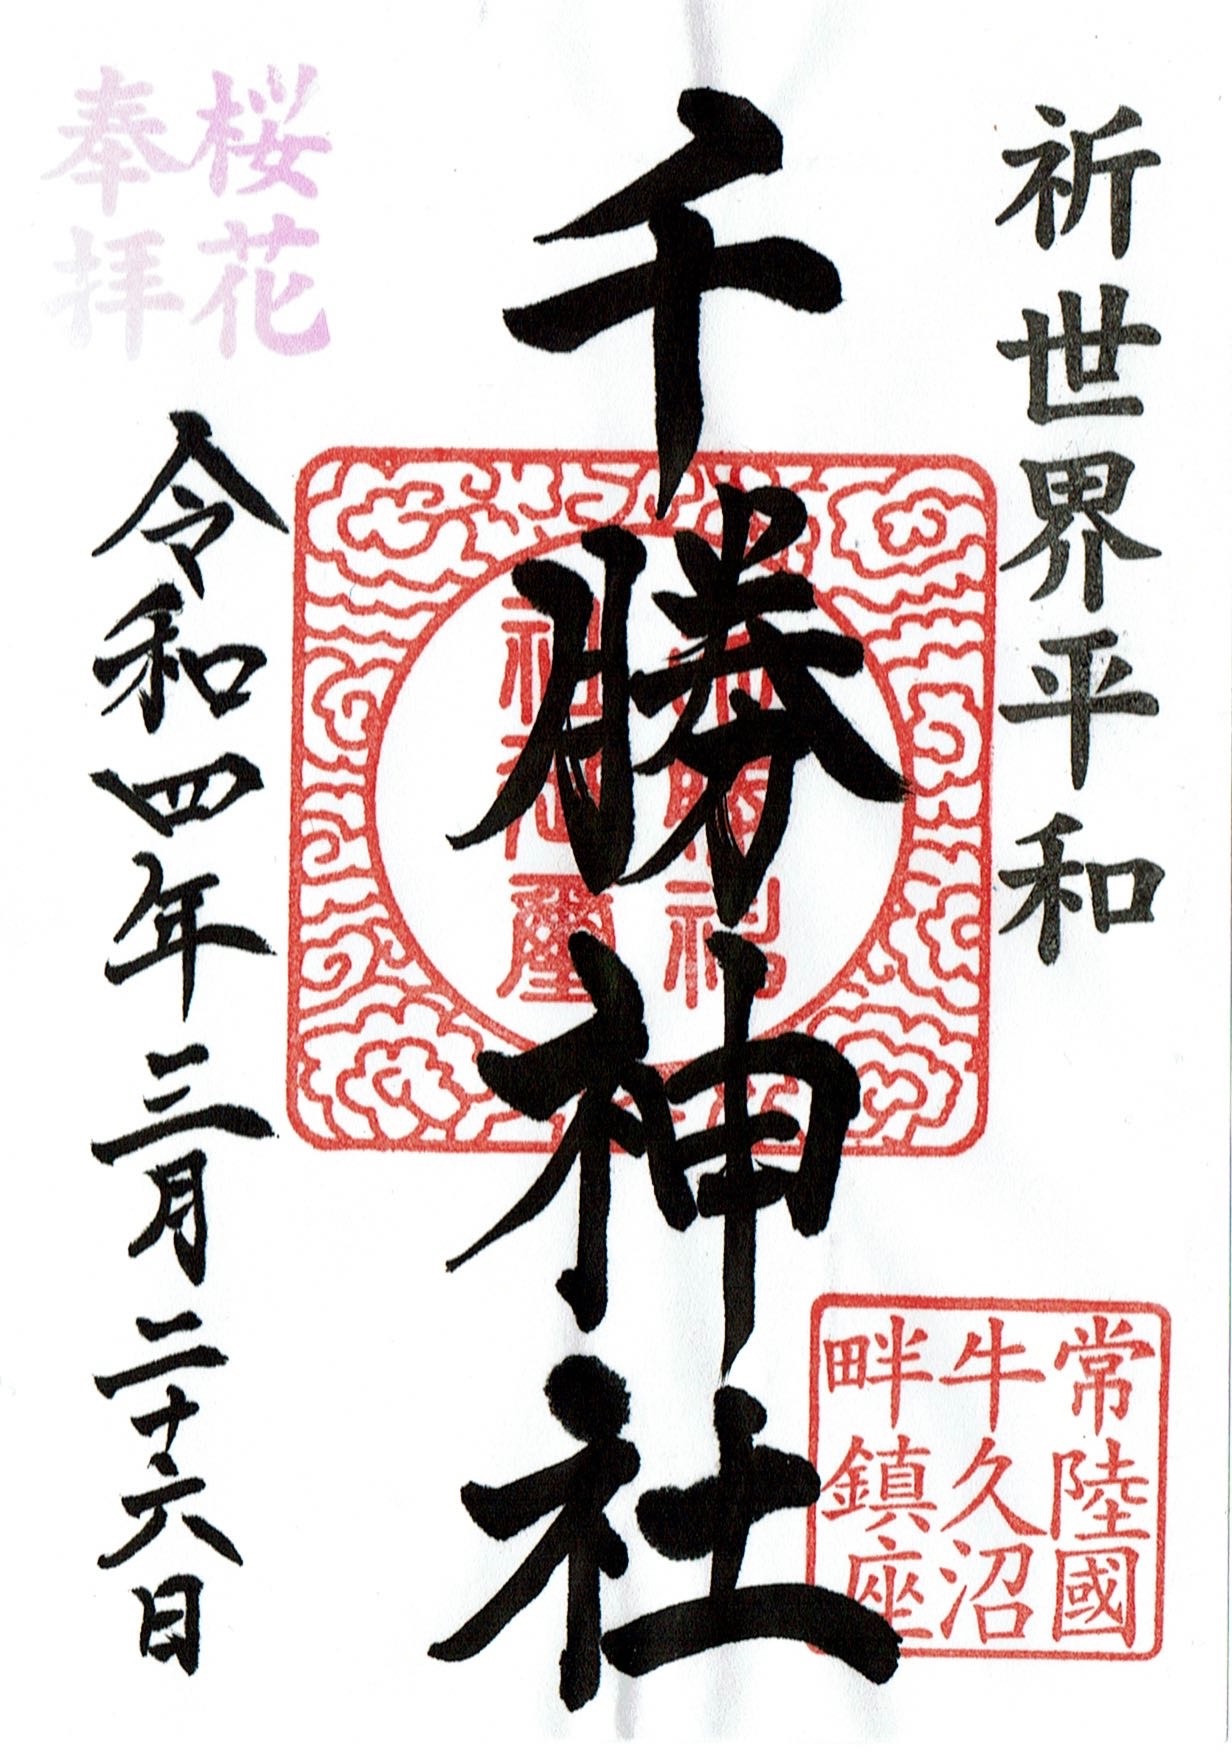 祈世界平和
千勝神社
常陸國
牛久沼
畔鎮座
桜花
奉拝
令和四年三月二十六日